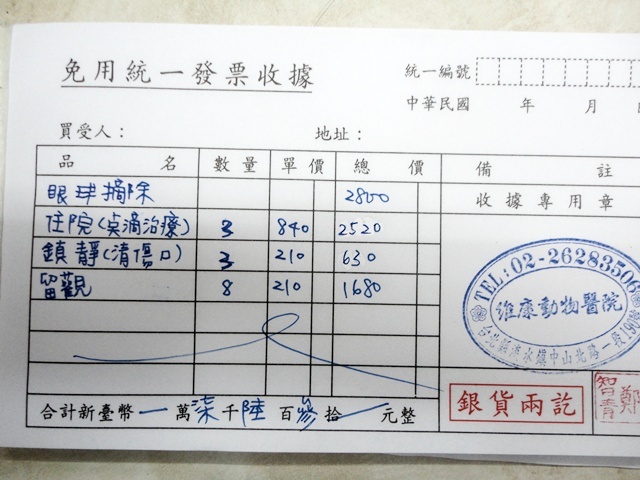 免用統一發票收據
統一編號
中華民國 年 月
買受人： 地址：
品名 數量 單價 總價 備註
眼球摘除 2800
收據專用章
住院(点滴治療) 3 840 2520
鎮靜(清傷口) 3 210 630
留觀 8 210 1680
TEL:02-26283506
維康動物醫院
淡水鎮中山北路一段
合計新臺幣 萬柒千陸百參拾 元整
銀貨兩訖
鄭智青